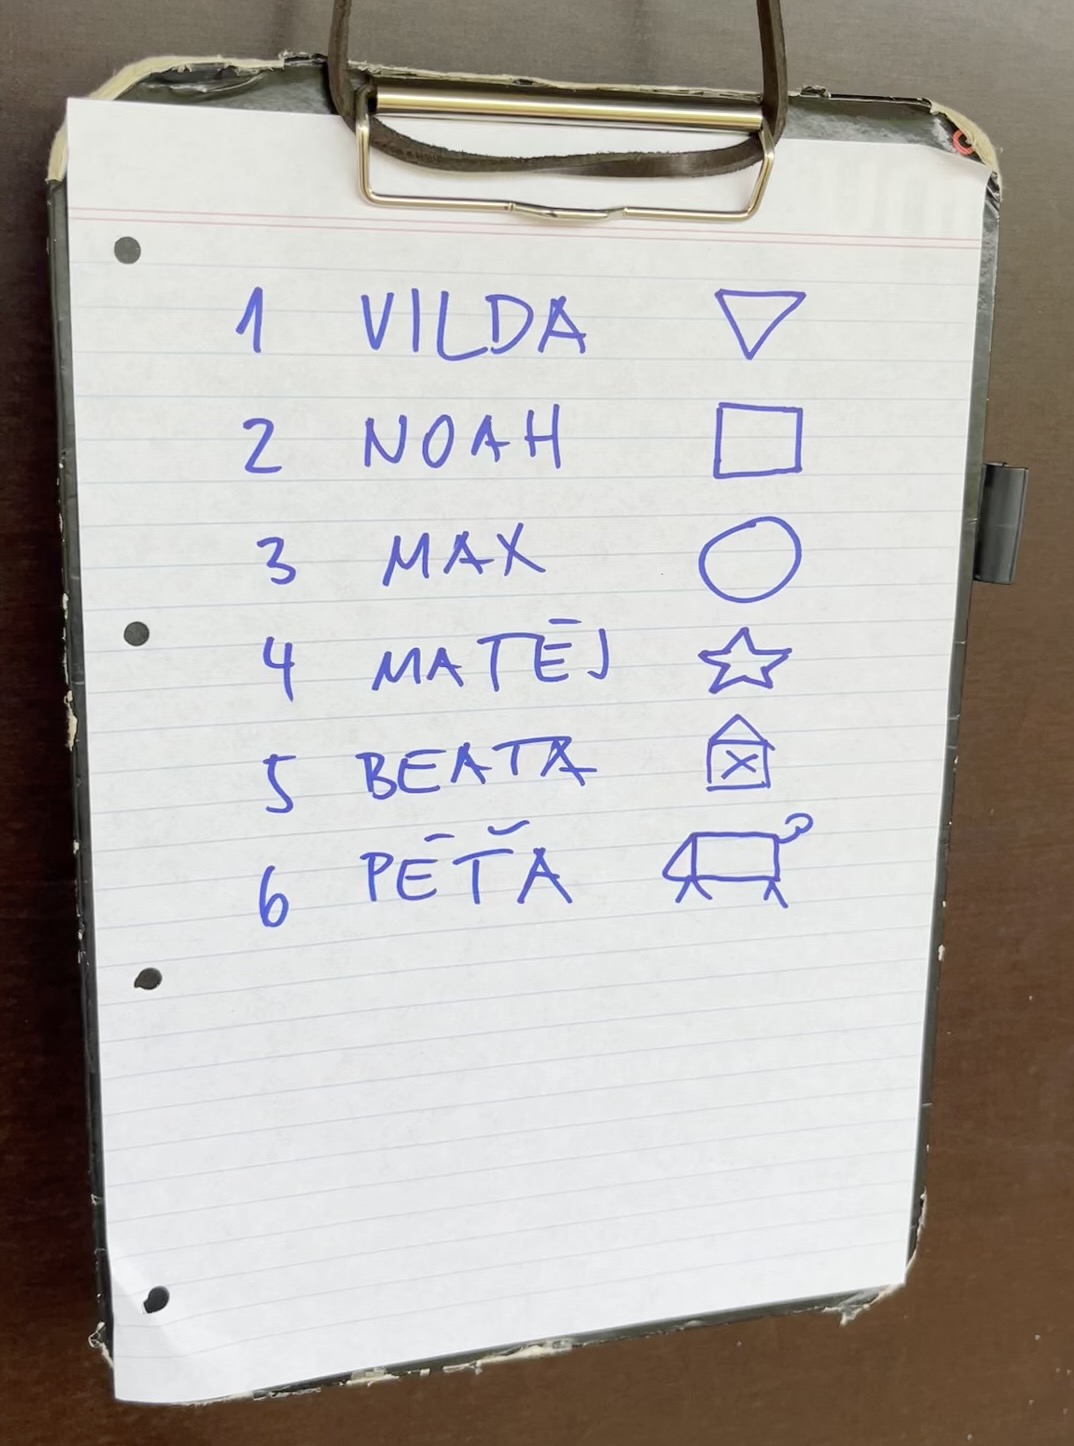 1 VILDA
2 NOAH
3 MAX
4 MATĒJ
5 BEATA
6 PĒŤA